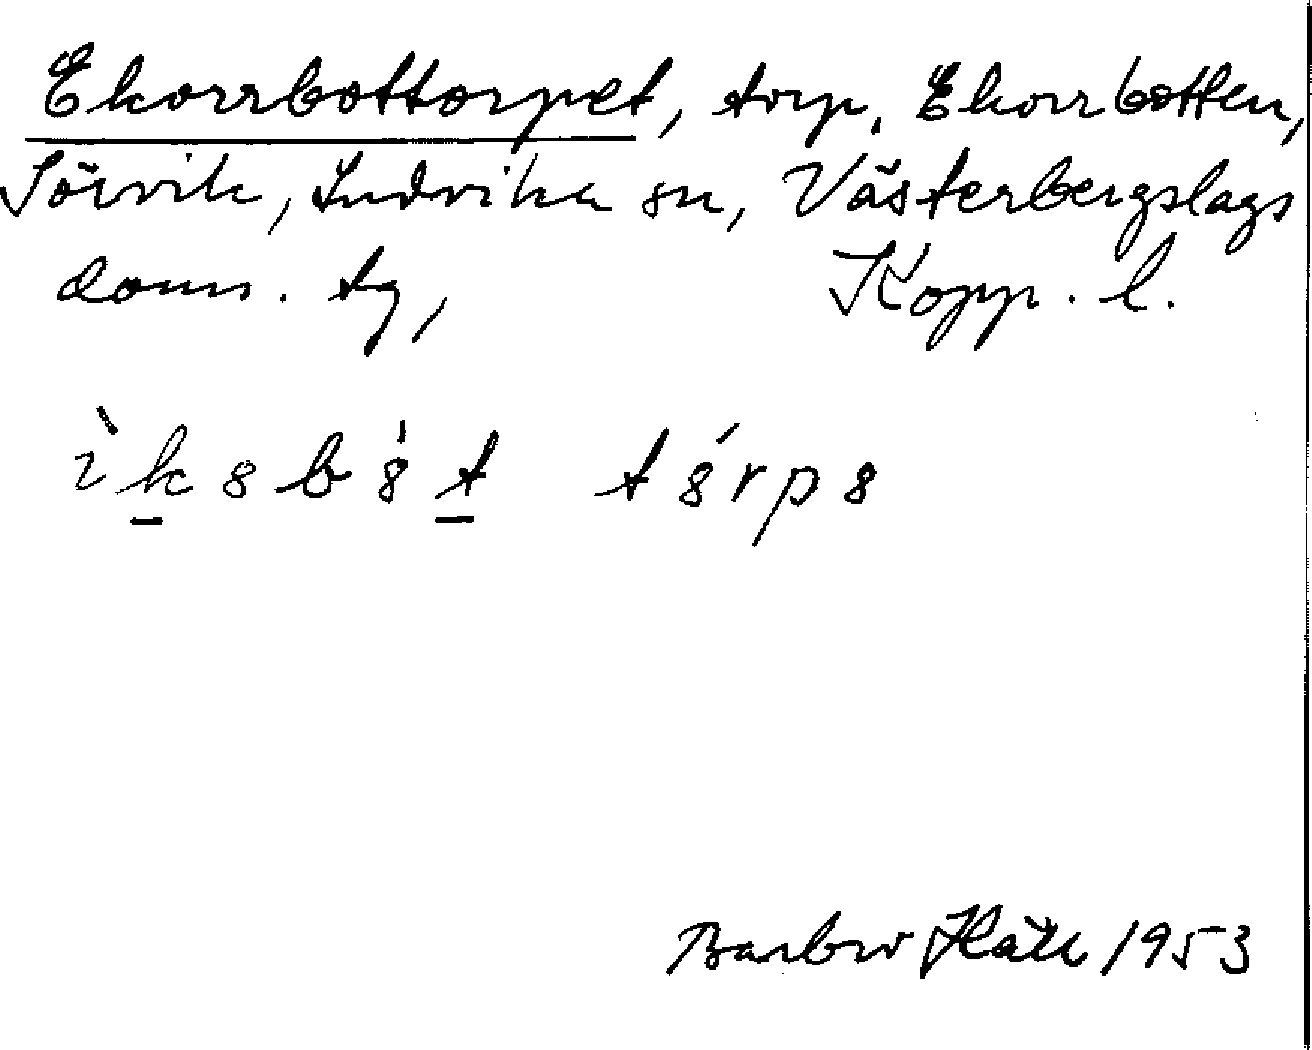 Ekorrbottorpet, torp, Ekorrbotten,
Sörvik, Ludvika sn, Västerbergslags
doms. tg, Kopp. l.
ìk̠ɞbɞ̍t̠ tɞ́rpɞ
Barbro 1953